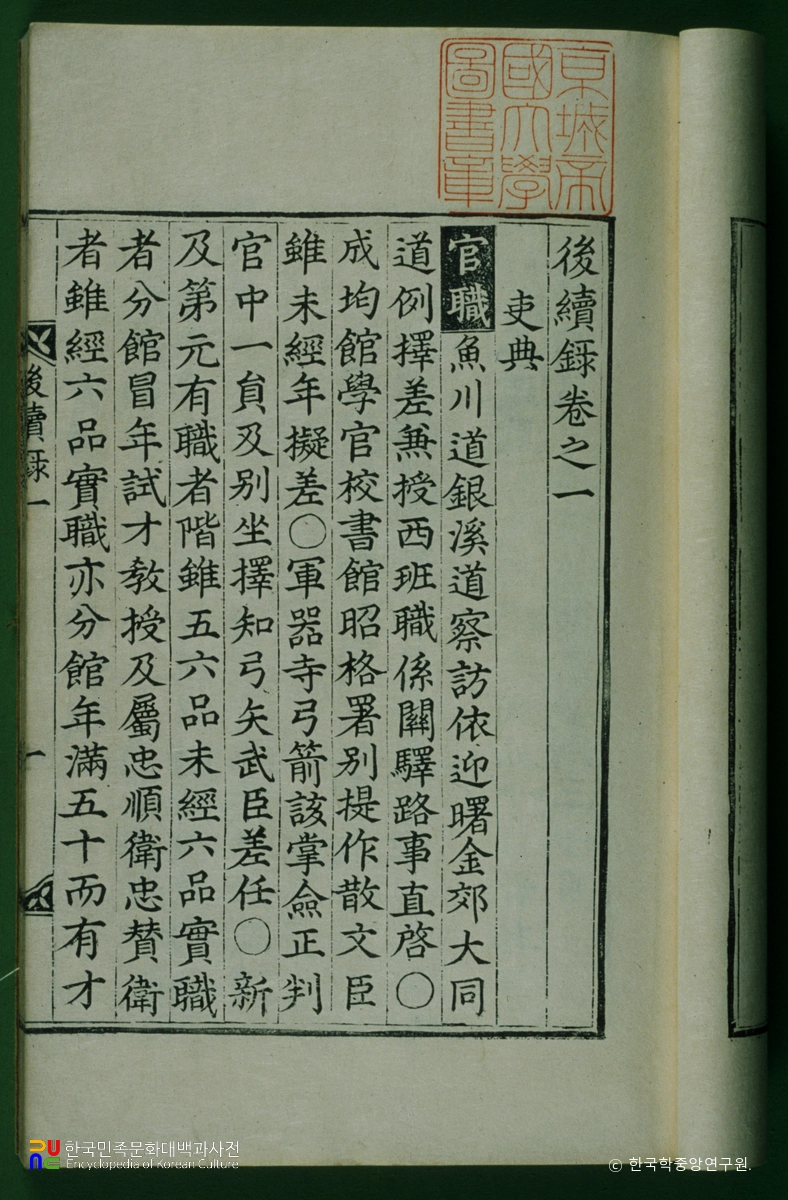 京城帝
國大學
圖書章
後續錄卷之一
吏典
官職魚川道銀溪道察訪依迎曙金郊大同
道例擇差兼授西班職係關驛路事直啓〇
成均館學官校書館昭格署別提作散文臣
雖未經年擬差〇軍器寺弓箭該掌僉正判
官中一員及別坐擇知弓矢武臣差任〇新
及第元有職者階雖五六品未經六品實職
者分館冒年試才敎授及屬忠順衛忠贊衛
者雖經六品實職亦分館年滿五十而有才
後續錄一
一
한국민족문화대백과사전
Encyclopedia of Korean Culture
© 한국학중앙연구원.